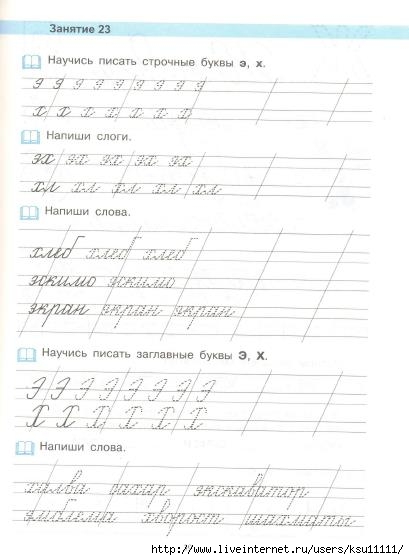 Занятие 23
Научись писать строчные буквы э, х.
э э э э э э э э э
х х х х х х х
Напиши слоги.
эх эх эх эх эх
хл хл хл хл хл
Напиши слова.
хлеб хлеб хлеб
эскимо эскимо
экран экран экран
Научись писать заглавные буквы Э, Х.
Э Э Э Э Э Э Э Э
Х Х Х Х Х Х
Напиши слова.
халва сахар экскаватор
эмблема хворост шахматы
http://www.liveinternet.ru/users/ksu11111/